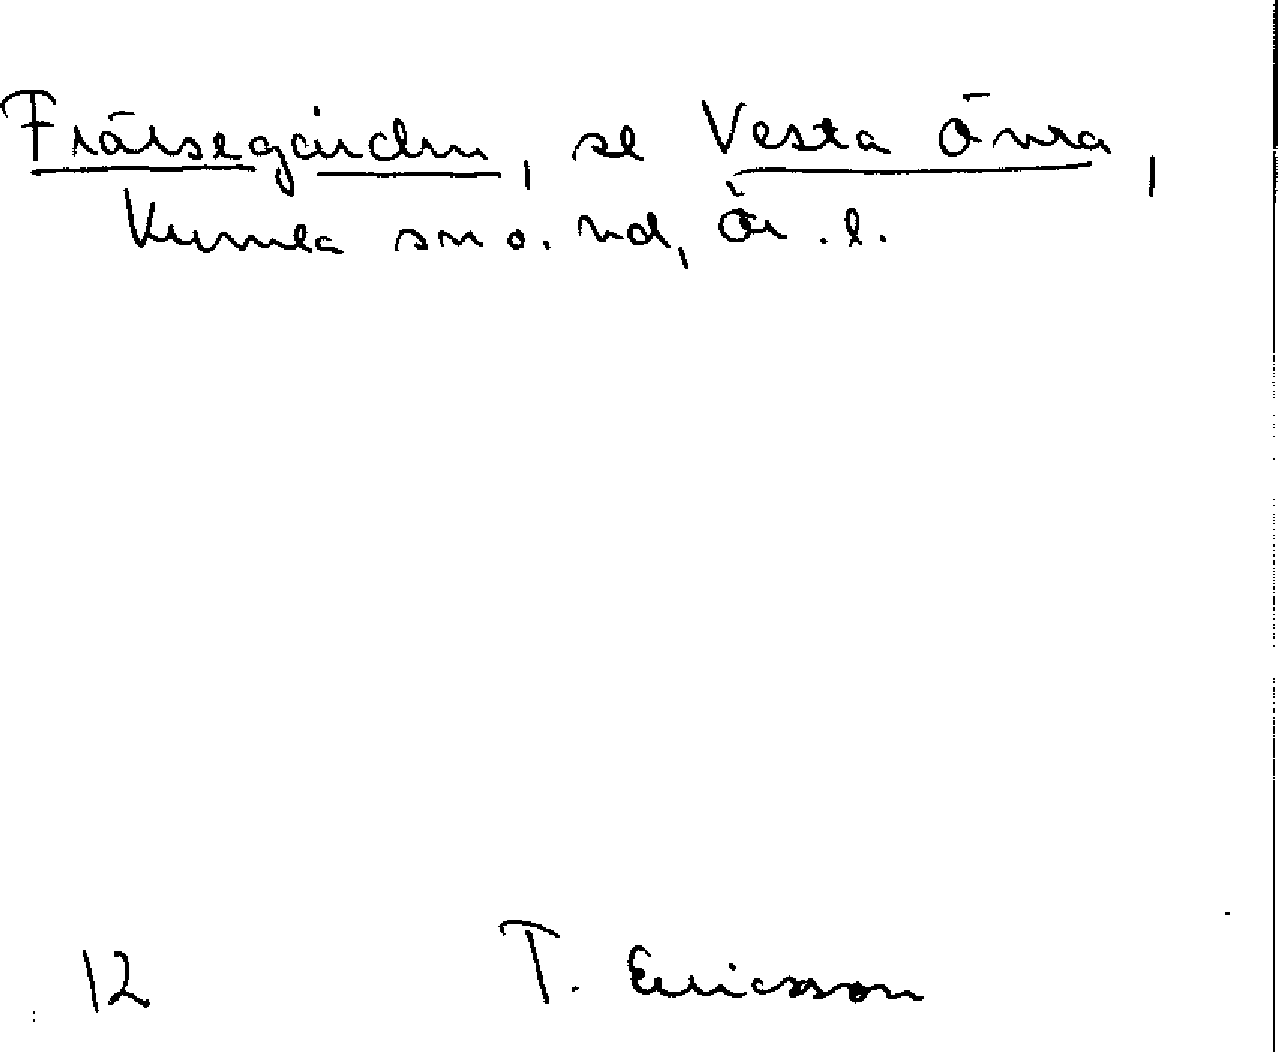 Frälsegården, se Vesta Ånsta,
Kumla sn o. hd, Ör. l.
12 T. Ericsson